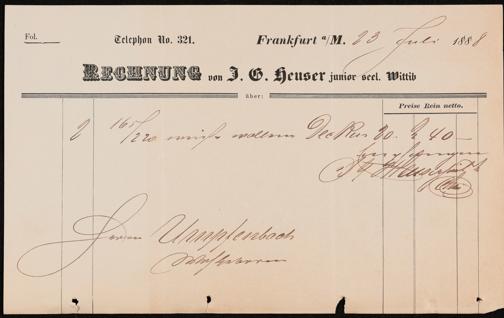 Fol.
Telephon No. 321.
Frankfurt a/M. 23 Juli 1888
RECHNUNG von J. G. Heuser junior seel. Wittib
über:
Preise Rein netto.
2 165/220 weiße wollene Decken 20. 40 —
Herrn Umpfenbach